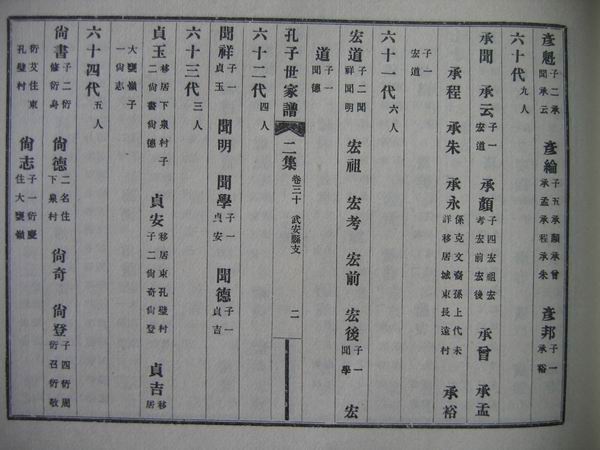 彥魁 子二承聞承云 彥綸 子五承顏承曾承孟承程承朱 彥邦 子一承裕
六十代 九人
承聞 承云 子一宏道 承顏 子四宏祖宏考宏前宏後 承曾 承孟
承程 承朱 承永 係克文裔孫上代未詳移居城東長遠村 承裕
子一宏道
六十一代 六人
宏道 子二聞祥聞明 宏祖 宏考 宏前 宏後 子一聞學 宏
道 子一聞德
孔子世家譜 二集 卷三十 武安縣支 二
六十二代 四人
聞祥 子一貞玉 聞明 聞學 子一貞安 聞德 子一貞吉
六十三代 三人
貞玉 移居下泉村子二尙書尙德 貞安 移居東孔璧村子二尙奇尙登 貞吉 移居
大甕嶺子一尙志
六十四代 五人
尙書 子二衍修衍身 尙德 二名住下泉村 尙奇 尙登 子四衍周衍召衍敬
衍艾住東孔璧村 尙志 子一衍慶住大甕嶺